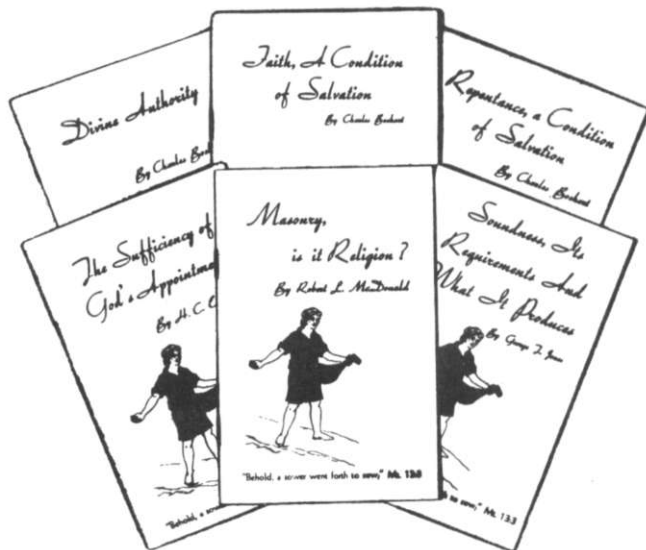 Divine Authority
By Charles
Faith, A Condition
of Salvation
By Charles Bochert
Repentance, a Condition
of Salvation
By Charles Bochert
The Sufficiency of
God's
By H. C.
"Behold, a sower
Masonry,
is it Religion?
By Robert L. MacDonald
"Behold, a sower went forth to sow," Mt. 13:3
Soundness, Its
Requirements And
What It Produces
By George T. Jones
to sow," Mt. 13:3